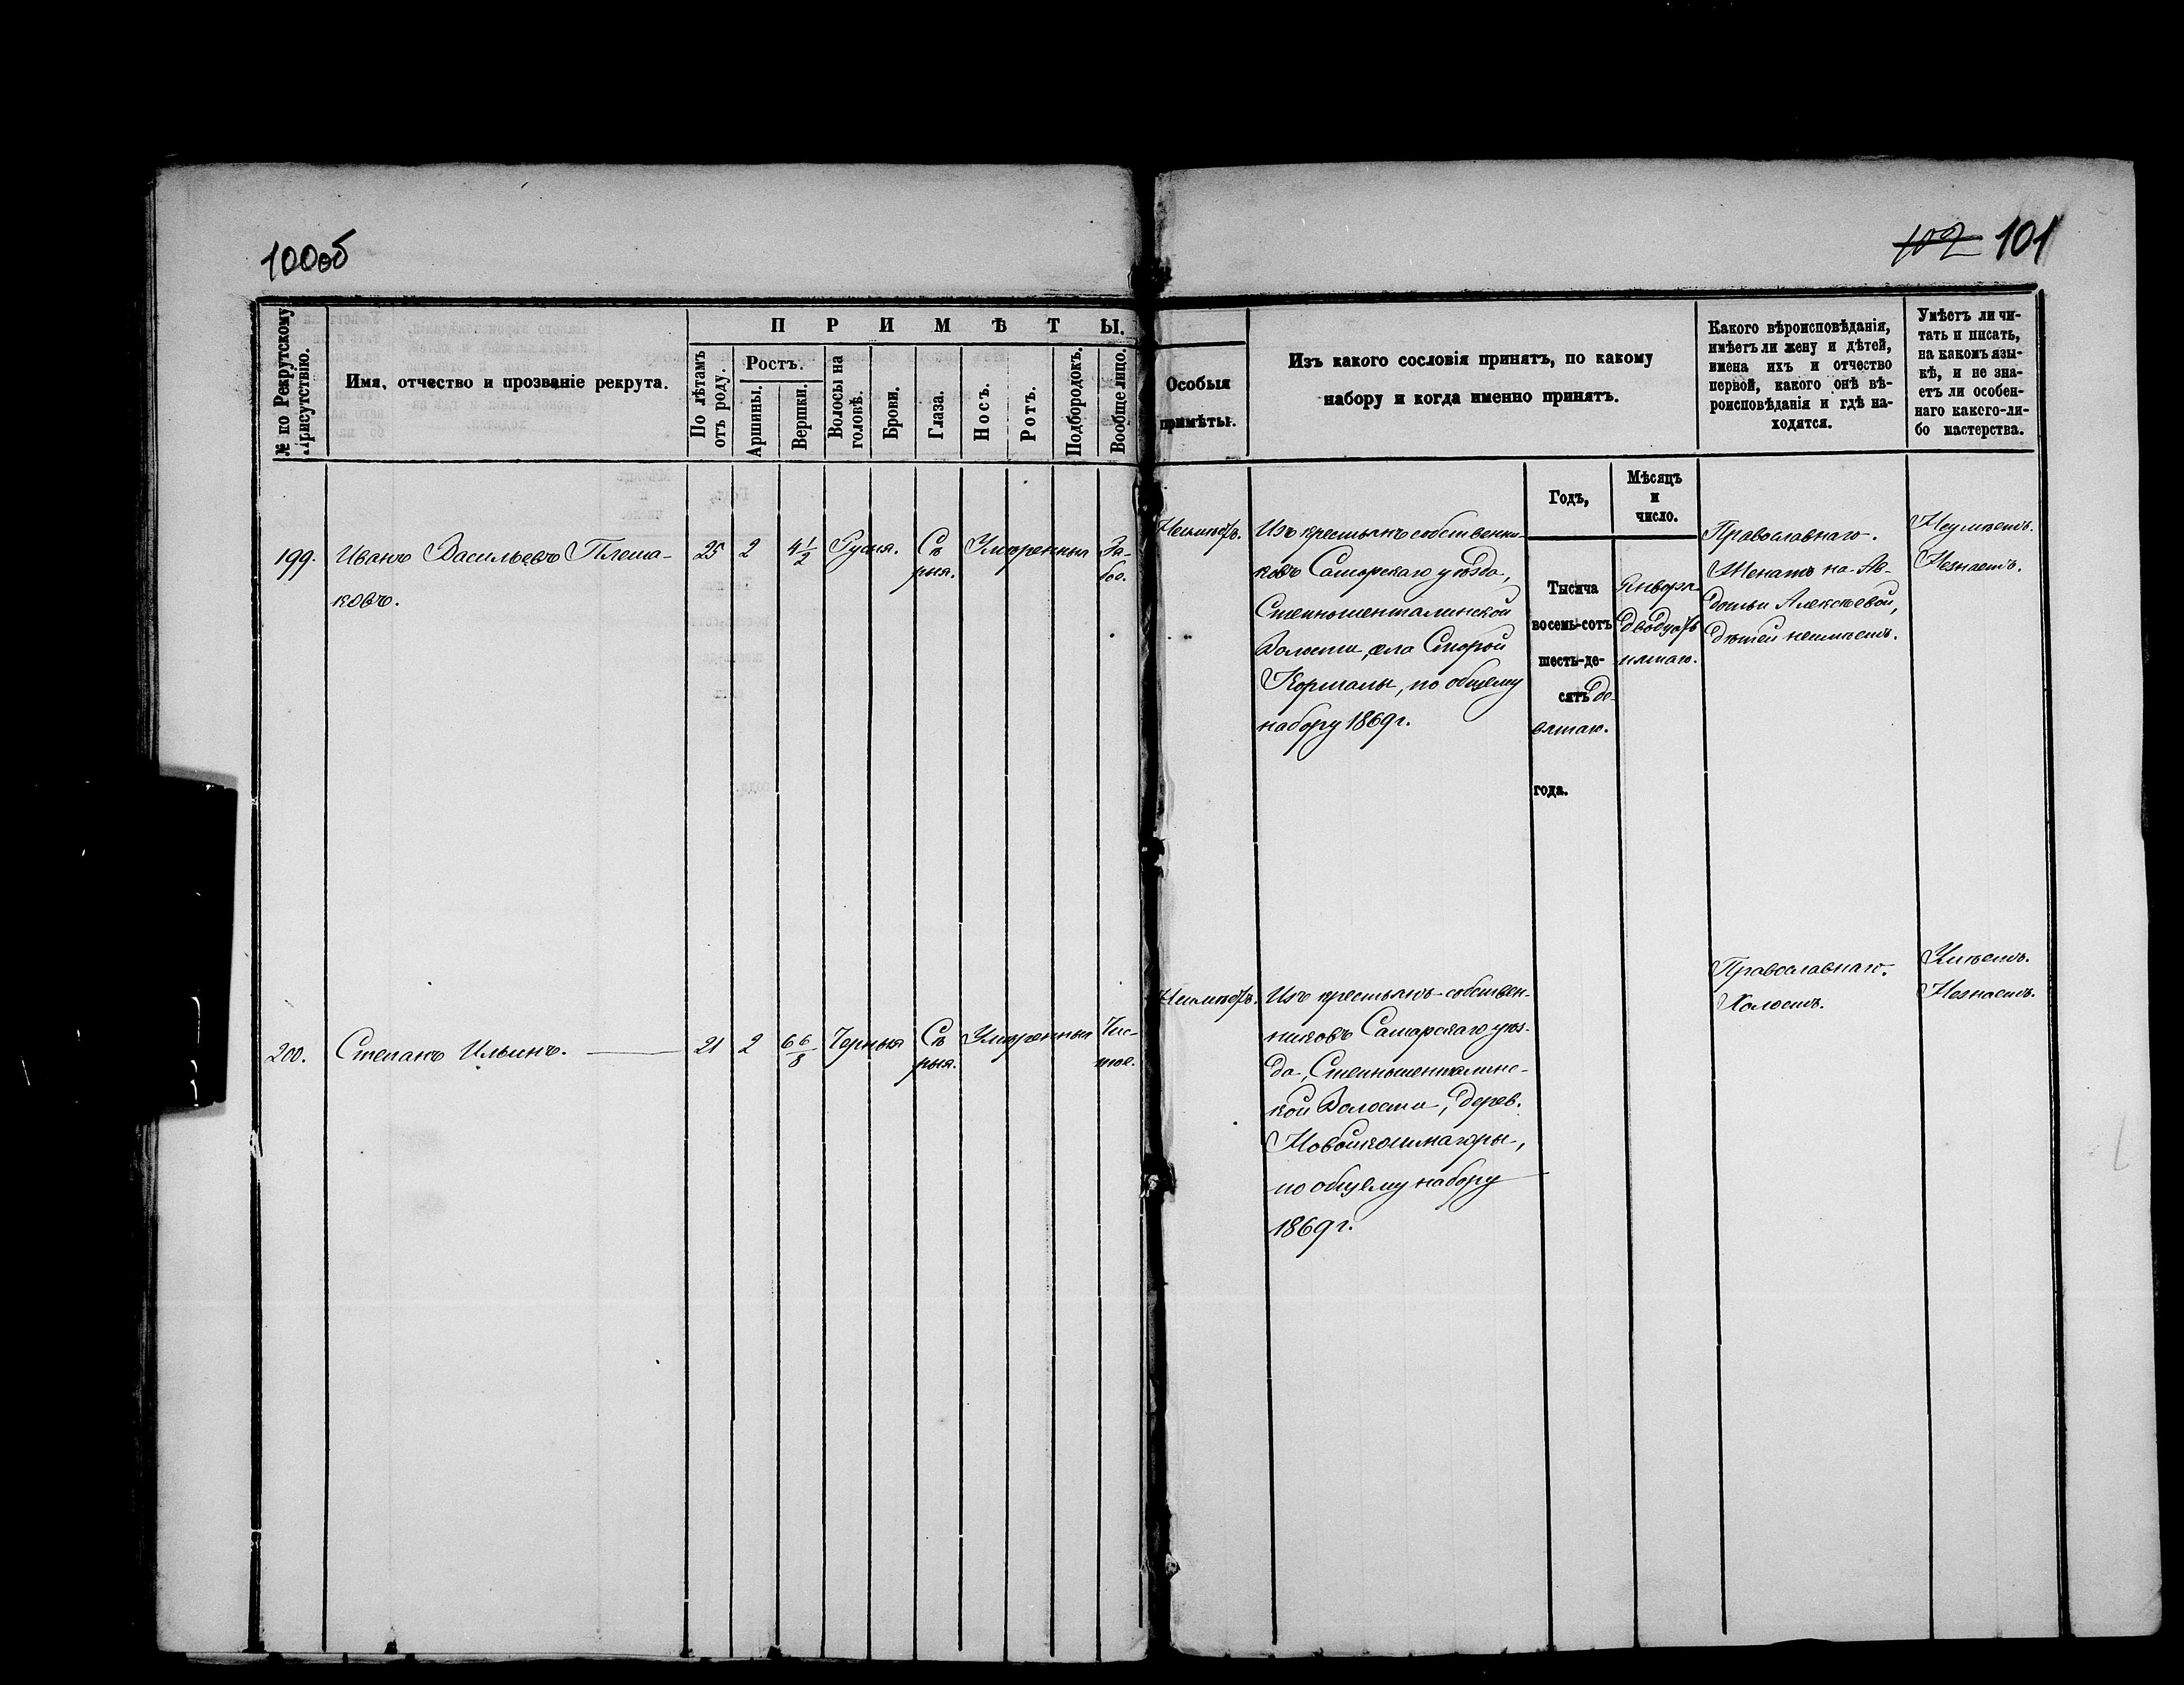 100об
102 101
№ по Рекрутскому Присутствію.
Имя, отчество и прозваніе рекрута.
ПРИМѢТЫ.
По лѣтамъ отъ роду.
Ростъ.
Аршины.
Вершки.
Волосы на головѣ.
Брови.
Глаза.
Носъ.
Ротъ.
Подбородокъ.
Вообще лицо.
Особыя
примѣты.
Изъ какого сословія принятъ, по какому
набору и когда именно принятъ.
Какого вѣроисповѣданія,
имѣетъ ли жену и дѣтей,
имена ихъ и отчество
первой, какого онѣ вѣ-
роисповѣданія и гдѣ на-
ходятся.
Умѣетъ ли чи-
тать и писать,
на какомъ язы-
кѣ, и не зна-
етъ ли особен-
наго какого-ли-
бо мастерства.
Годъ,
Мѣсяцъ
и
число.
199. Иванъ Васильевъ Плеша-
ковъ.
25 2 4 1/2 Русыя. Сѣ
рыя.
Умѣренныя
Ря-
бое.
Неимѣетъ.
Изъ крестьянъ собственни-
ковъ Самарскаго уѣзда,
Степношенталинской
Волости, села Старой
Кармалы, по общему
набору 1869 г.
Тысяча
восемь-сотъ
шесть-де-
сятъ де-
вятаго.
года.
Января
двадцать
пятаго.
Православнаго.
Женатъ на Ав-
дотьи Алексѣевой,
дѣтей неимѣетъ.
Неумѣетъ.
Незнаетъ.
200. Степанъ Ильинъ.
21 2 6 6/8 Черныя Сѣ
рыя.
Умѣренныя
Чис-
тое.
Неимѣетъ.
Изъ крестьянъ собствен-
никовъ Самарскаго уѣз-
да, Степношенталинс-
кой Волости, дерев.
по общему набору
1869 г.
Православнаго.
Холостъ.
Умѣетъ.
Незнаетъ.